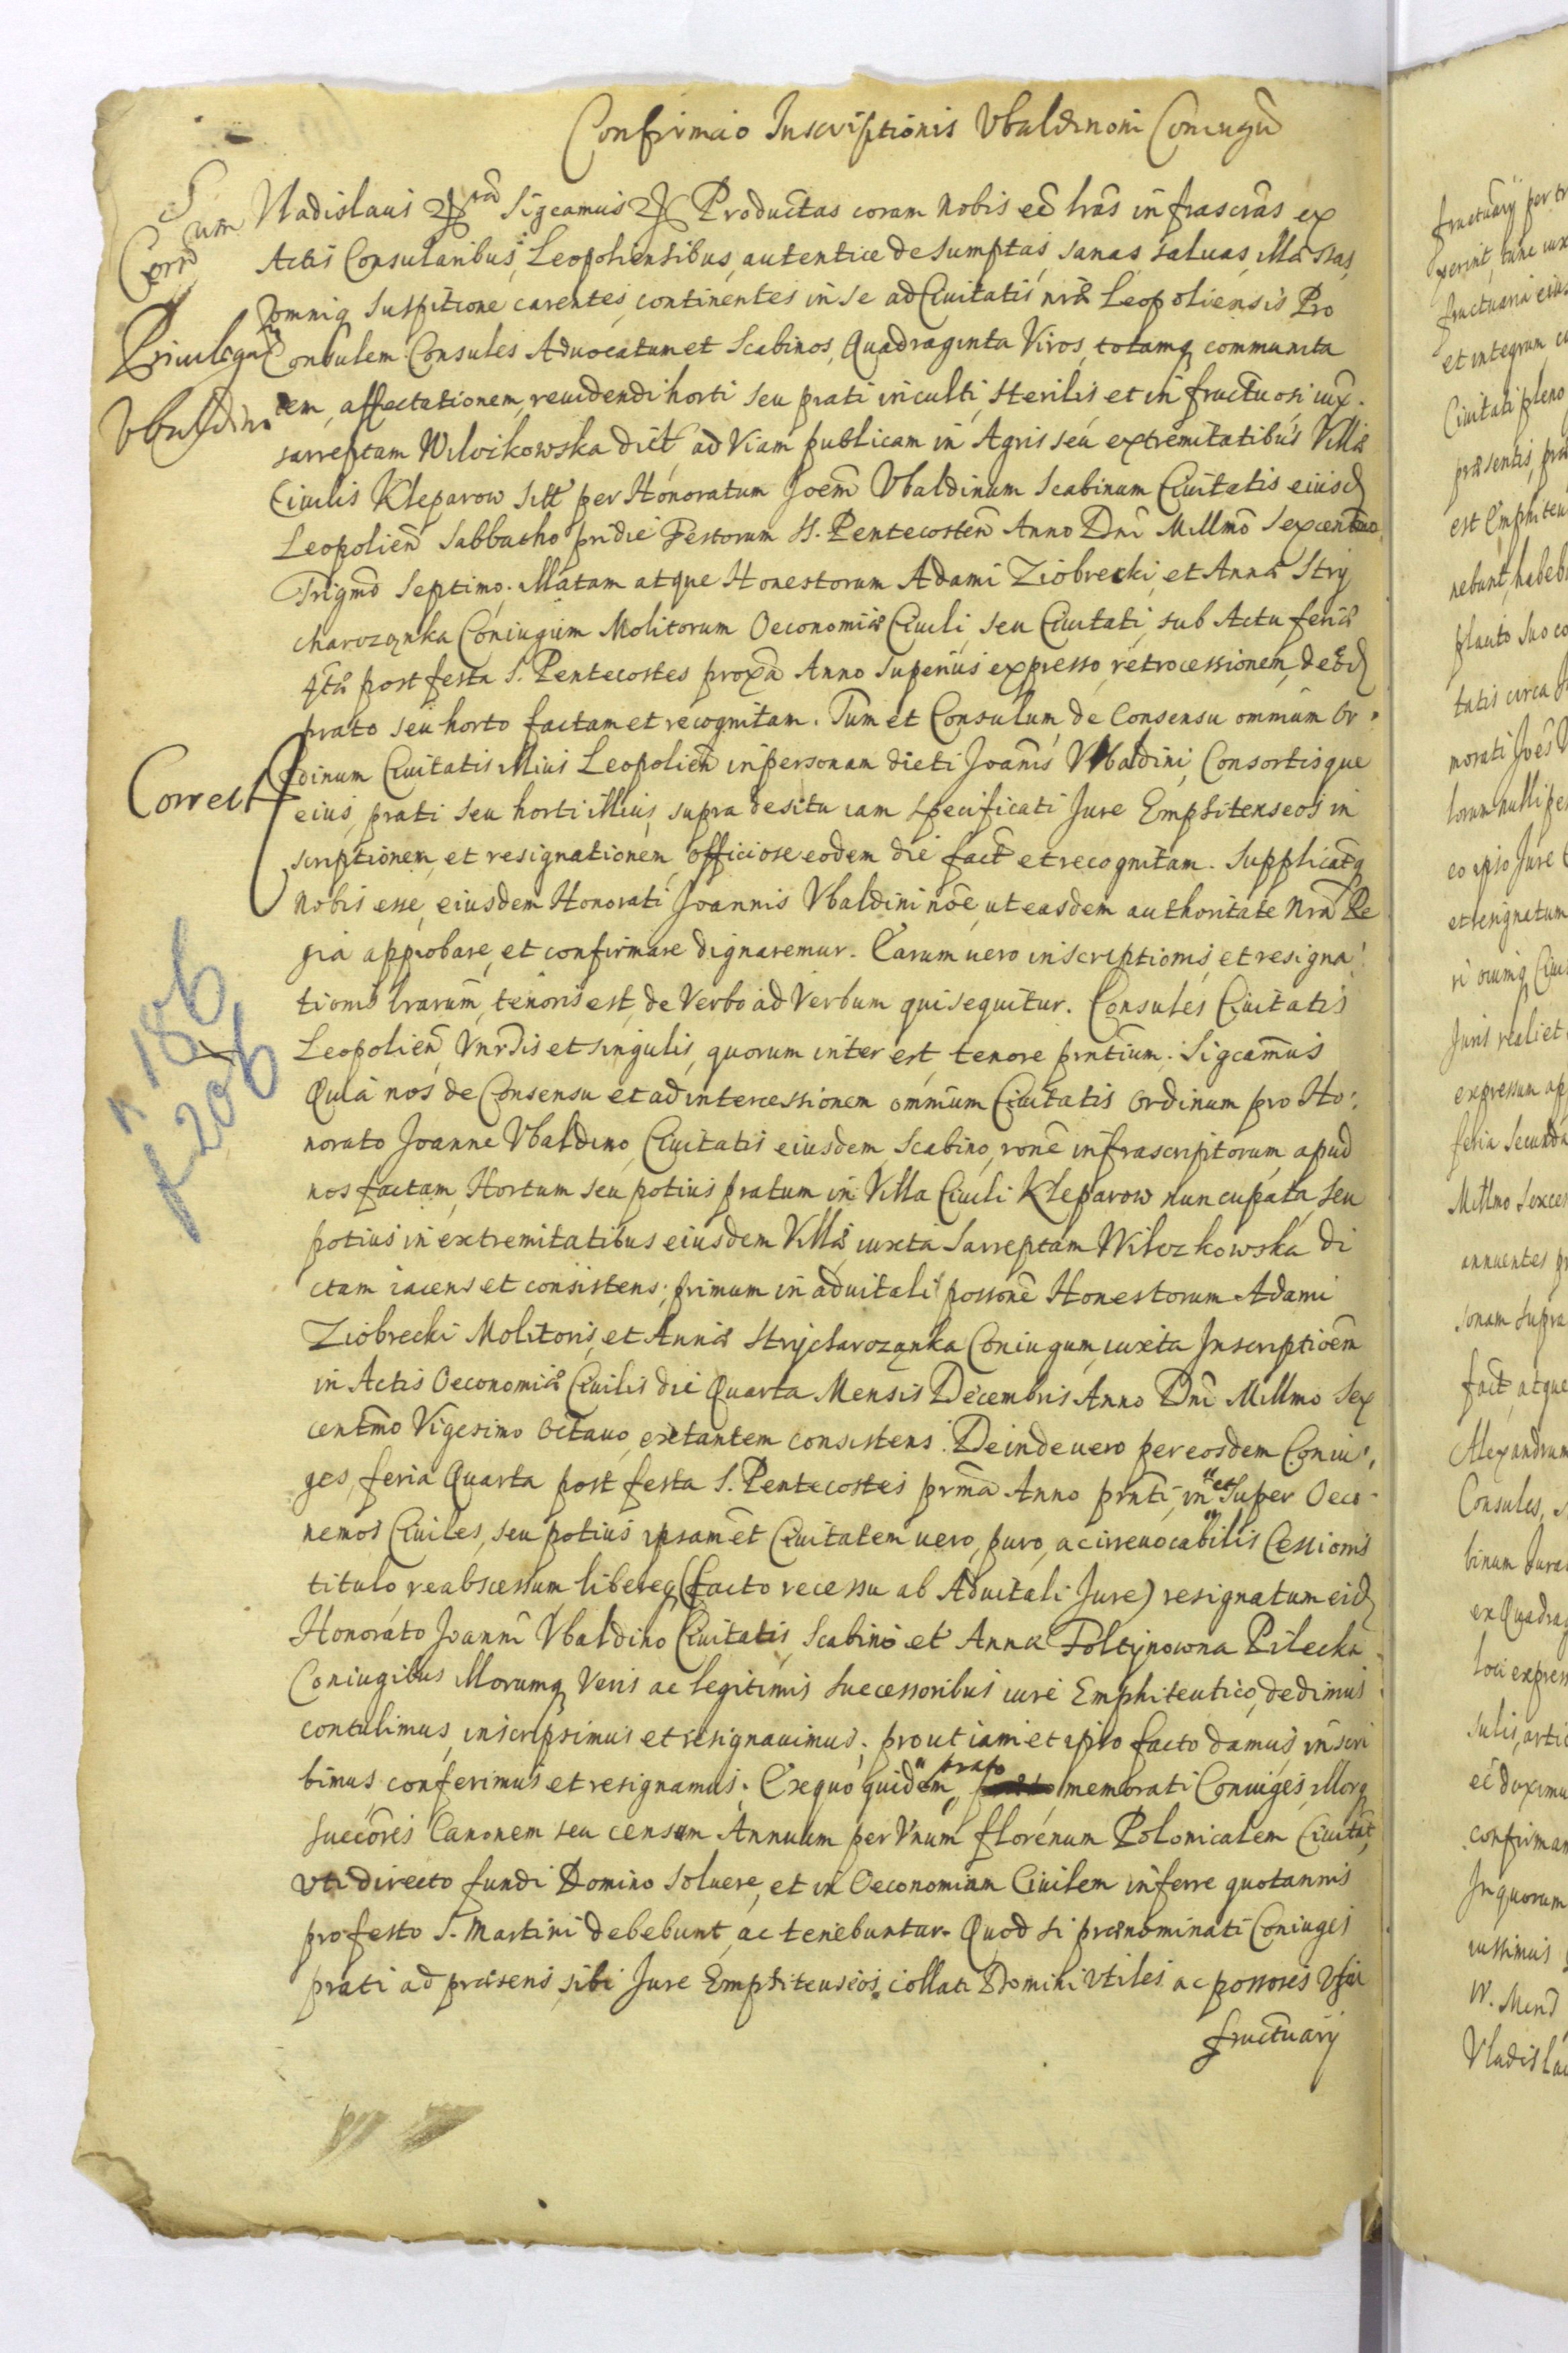 Confirmaõ Inscriptionis Vbaldinoni Coniugũ
Vladislaus Sigcamus Productas coram nobis eẽ lrãs infrascrãs ex
Actis Consularibus, Leopoliensibus, autentice desumptas, sanas saluas, illæsas,
omniq suspitione carentes, continentes in se ad Ciuitatis nrẽ Leopoliensis Pro
Consulem Consules Aduocatum et Scabinos, Quadraginta Viros, totamq communita
tem, affectationem, reuidendi horti seu prati inculti, sterilis et infructuosi iux.
sarreptam Wilczkowska dict, ad Viam publicam in Agris seu extremitatibus Villæ
Ciuilis Kleparow sitt per Honoratum Joem̃ Vbaldinum Scabinum Ciuitatis eiusd
Leopolieñ Sabbatho pridie Festorum S. Pentecosteñ Anno Dnĩ Millmõ Sexcentmo
Trigmõ Septimo. Illatam atque Honestorum Adami Ziobrecki, et Annæ Stry
charcząnka Coniugum Molitorum Oeconomiæ Ciuili, seu Ciuitati, sub Actu feriæ
4tæ post festa S. Pentecostes proxã Anno superius expresso, retrocessionem, de eod
prato seu horto factam et recognitam. Tum et Consulum, de Consensu omnium Or
dinum Ciuitatis illius Leopolieñ in personam dicti Joanis Vbaldini, Consortisque
eius, prati seu horti illius, supra de situ iam specificati Jure Emphitenseos in
scriptionem, et resignationem, officiose eodem die fact et recognitam. Supplicatq
nobis esse, eiusdem Honorati Joannis Vbaldini noẽ, ut easdem authoritate nrã Re
gia approbare, et confirmare dignaremur. Earum uero inscriptionis, et resigna
tionis lrarum, tenoris est, de Verbo ad Verbum qui sequitur. Consules Ciuitatis
Leopolieñ, Vnrsis et singulis, quorum interest, tenore prntium. Sigcamus
Quia nos de Consensu et ad intercessionem omnium Ciuitatis Ordinum pro Ho:
norato Joanne Vbaldino, Ciuitatis eiusdem, Scabino, ronẽ infrascriptorum, apud
nos factam, Hortum seu potius pratum in Villa Ciuili Kleparow nuncupata, seu
potius in extremitatibus eiusdem Villæ, iuxta Sarreptam Wilczkowska di
ctam iacens et consistens; primum in aduitali possonẽ Honestorum Adami
Ziobrecki Molitoris, et Annæ Strycharozanka Coniugum, iuxta Inscriptioẽm
in Actis Oeconomiæ Ciuilis die Quarta Mensis Decembris Anno Dnĩ Millmo Sex
centmo Vigesimo Octauo, extantem consistens. Deinde uero per eosdem Coniu,
ges, feria Quarta post festa S. Pentecostes prmã Anno prnti, in et super Oeco
nomos Ciuiles, seu potius ipsam et Ciuitatem uero, puro, ac irreuocabilis Cessionis
titulo, reabscessum, libereq (facto recessu ab Aduitali Jure) resignatum eid
Honorato Joanni Vbaldino Ciuitatis, Scabino et Annæ Foltynowna Pilecka
Coniugibus illorumq Veris ac legitimis Successoribus iure Emphiteutico, dedimus
contulimus, inscripsimus et resignauimus; prout iam et ipso facto damus inscri
bimus conferimus et resignamus. Ex quo quidem, prato memorati Coniuges, illorq
Succores Canonem seu censum Annuum per Vnum florenum Polonicalem Ciuitat,
uti directo fundi Domino soluere, et in Oeconomiam Ciuilem inferre quotannis
pro festo S. Martini debebunt, ac tenebuntur. Quod si prænominati Coniuges
prati ad præsens, sibi Jure Emphiteuseos, collati Domini Vtiles ac possores Vsu
fructuarij
Corrd
um
Priuilegũ
Vbaldin
Correct
n 186
f 206
fructuarij per tr
xerint, tunc iux
fructuaria eius
et integrum, cu
Ciuitati pleno
præsentis, pra
est Emphiteu
nebunt, habeb
plauto suo co
tatis circa
morati Joẽs V
lorum nulli pe
eo ipso Jure
et resignatum
ri ouinq Ciui
Juris reali et
expressum ap
feria Secunda
Millmo Sexcen
annuentes p
sonam supra
fact, atque
Alexandrum
Consules,
binum Jura
ex Quadrag
loci expres
sulis, artic
eẽ duximu
confirman
In quorum
iussimus
W. Mend
Vladislau